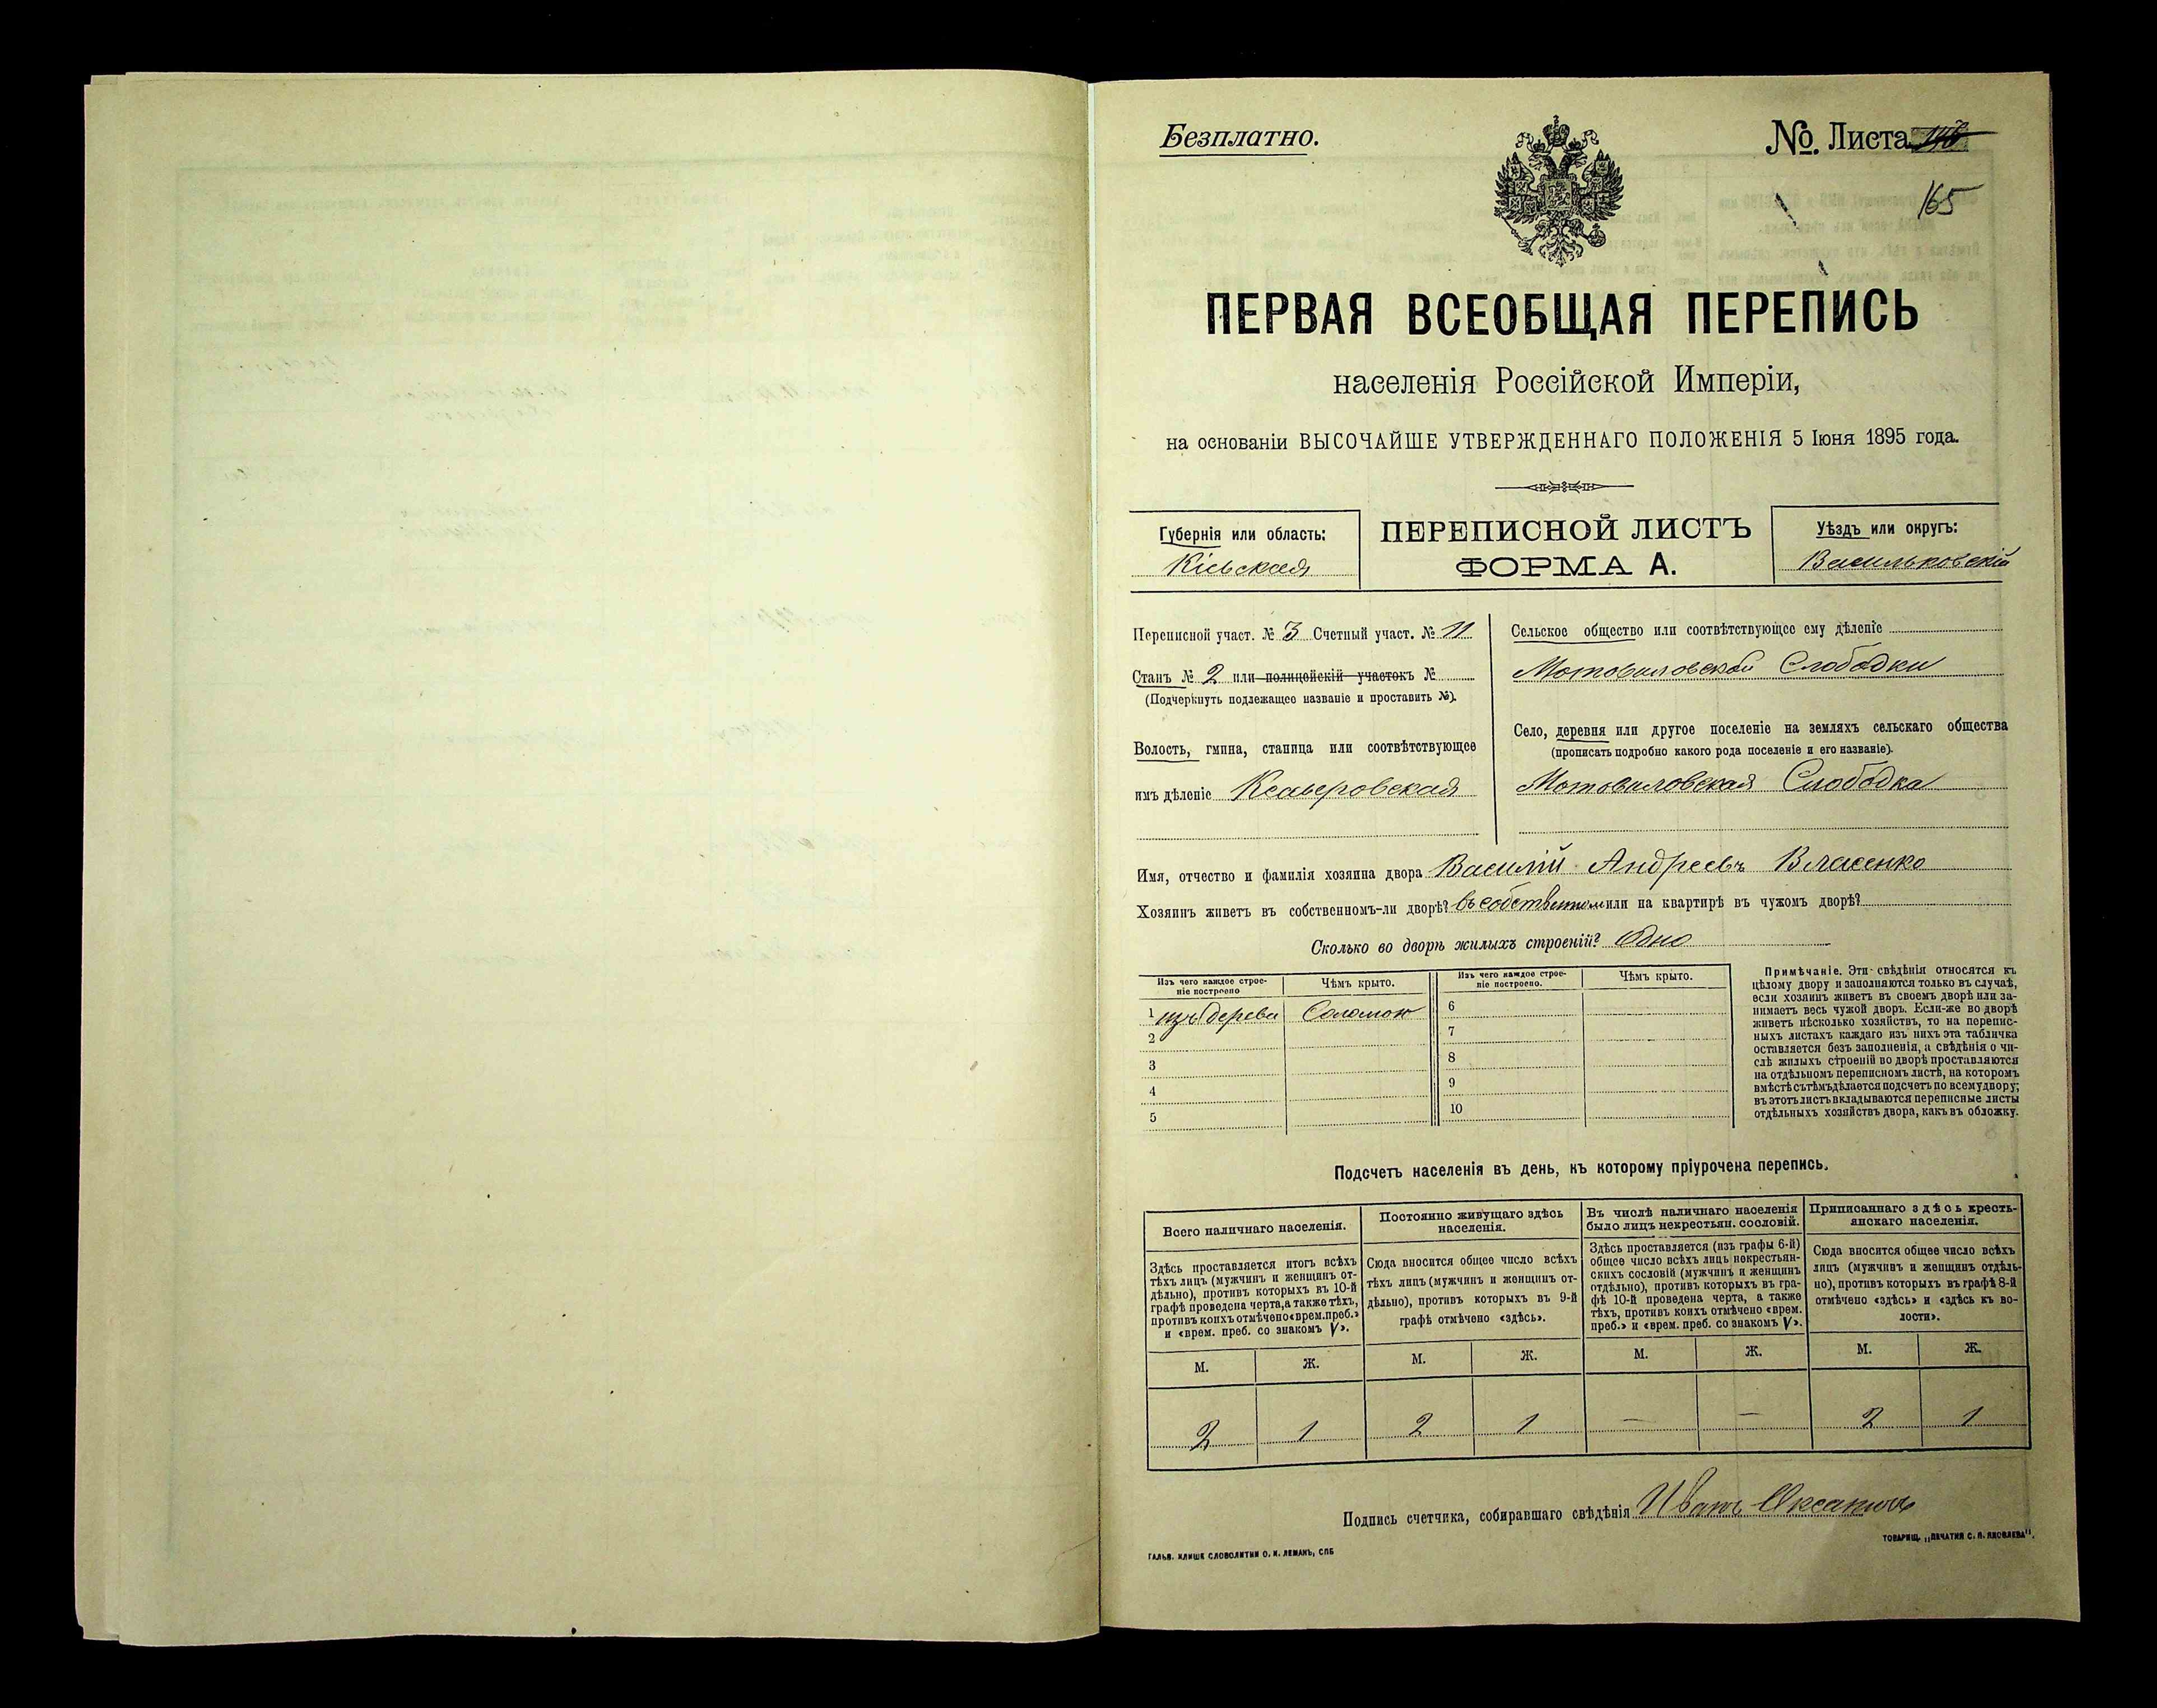 Безплатно.
№. Листа
165
ПЕРВАЯ ВСЕОБЩАЯ ПЕРЕПИСЬ
населенія Россійской Имперіи,
на основаніи ВЫСОЧАЙШЕ УТВЕРЖДЕННАГО ПОЛОЖЕНІЯ 5 Іюня 1895 года.
Губернія или область:
Кіевская
ПЕРЕПИСНОЙ ЛИСТЪ
ФОРМА А.
Уѣздъ или округъ:
Васильковскій
Переписной участ. № 3 Счетный участ. № 11
Станъ № 2 или полицейскій участокъ №
(Подчеркнуть подлежащее названіе и проставить №).
Волость, гмина, станица или соотвѣтствующее
имъ дѣленіе Ксаверовская
Сельское общество или соотвѣтствующее ему дѣленіе
Мотовиловской Слободки
Село, деревня или другое поселеніе на земляхъ сельскаго общества
(прописать подробно какого рода поселеніе и его названіе).
Мотовиловская Слободка
Имя, отчество и фамилія хозяина двора Василій Андреевъ Власенко
Хозяинъ живетъ въ собственномъ-ли дворѣ? въ собственномъ или на квартирѣ въ чужомъ дворѣ?
Сколько во дворѣ жилыхъ строеній? Одно
Изъ чего каждое строе-
ніе построено
Чѣмъ крыто.
Изъ чего каждое строе-
ніе построено.
Чѣмъ крыто.
1 изъ дерева Соломою 6
2 7
3 8
4 9
5 10
Примѣчаніе. Эти свѣдѣнія относятся къ
цѣлому двору и заполняются только въ случаѣ,
если хозяинъ живетъ въ своемъ дворѣ или за-
нимаетъ весь чужой дворъ. Если-же во дворѣ
живетъ нѣсколько хозяйствъ, то на перепис-
ныхъ листахъ каждаго изъ нихъ эта табличка
оставляется безъ заполненія, а свѣдѣнія о чи-
слѣ жилыхъ строеній во дворѣ проставляются
на отдѣльномъ переписномъ листѣ, на которомъ
вмѣстѣ съ тѣмъ дѣлается подсчетъ по всему двору;
въ этотъ листъ вкладываются переписные листы
отдѣльныхъ хозяйствъ двора, какъ въ обложку.
Подсчетъ населенія въ день, къ которому пріурочена перепись.
Всего наличнаго населенія.
Здѣсь проставляется итогъ всѣхъ
тѣхъ лицъ (мужчинъ и женщинъ от-
дѣльно), противъ которыхъ въ 10-й
графѣ проведена черта, а также тѣхъ,
противъ коихъ отмѣчено «врем. преб.»
и «врем. преб. со знакомъ V».
Постоянно живущаго здѣсь
населенія.
Сюда вносится общее число всѣхъ
тѣхъ лицъ (мужчинъ и женщинъ от-
дѣльно), противъ которыхъ въ 9-й
графѣ отмѣчено «здѣсь».
Въ числѣ наличнаго населенія
было лицъ некрестьян. сословій.
Здѣсь проставляется (изъ графы 6-й)
общее число всѣхъ лицъ некрестьян-
скихъ сословій (мужчинъ и женщинъ
отдѣльно), противъ которыхъ въ гра-
фѣ 10-й проведена черта, а также
тѣхъ, противъ коихъ отмѣчено «врем.
преб.» и «врем. преб. со знакомъ V».
Приписаннаго здѣсь кресть-
янскаго населенія.
Сюда вносится общее число всѣхъ
лицъ (мужчинъ и женщинъ отдѣль-
но), противъ которыхъ въ графѣ 8-й
отмѣчено «здѣсь» и «здѣсь къ во-
лости».
М. Ж. М. Ж. М. Ж. М. Ж.
2 1 2 1 — — 2 1
Подпись счетчика, собиравшаго свѣдѣнія Иванъ
ГАЛЬВ. КЛИШЕ СЛОВОЛИТНИ О. И. ЛЕМАНЪ, СПБ
ТОВАРИЩ. „ПЕЧАТНЯ С. П. ЯКОВЛЕВА".